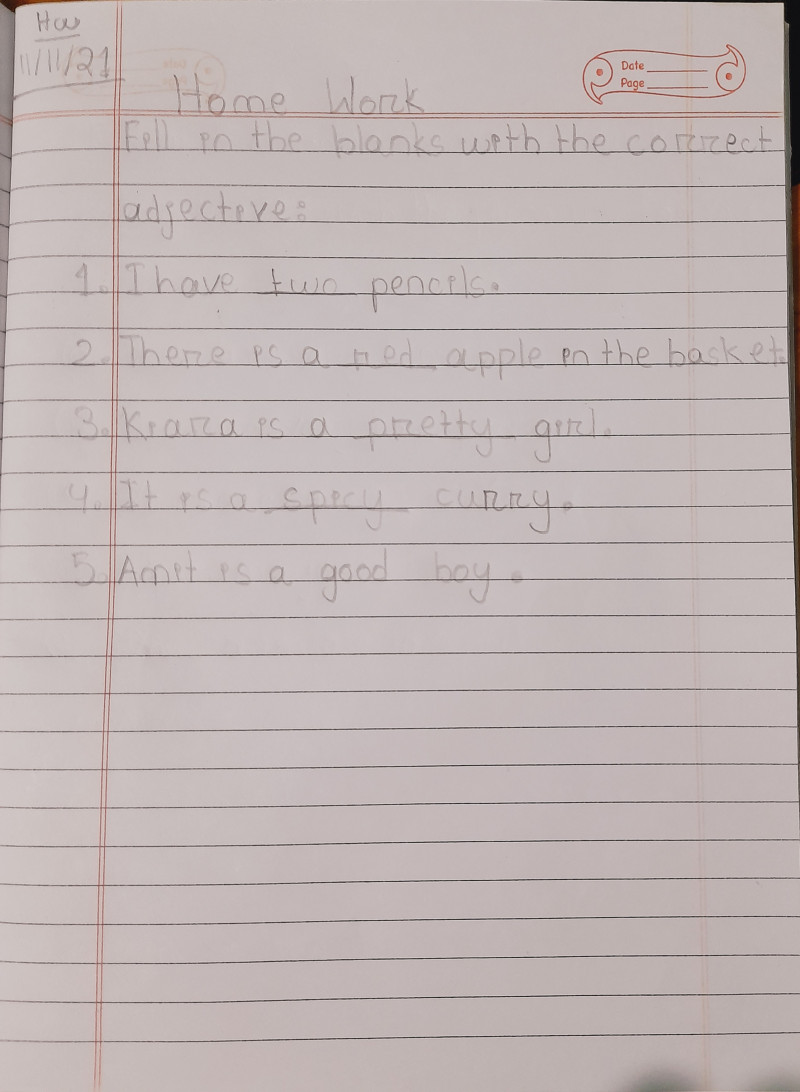 HW
11/11/21
Date
Page
Home Work
Fill in the blanks with the correct
adjective:
1. I have two pencils.
2. There is a red apple in the basket.
3. Kiara is a pretty girl.
4. It is a spicy curry.
5. Amit is a good boy.